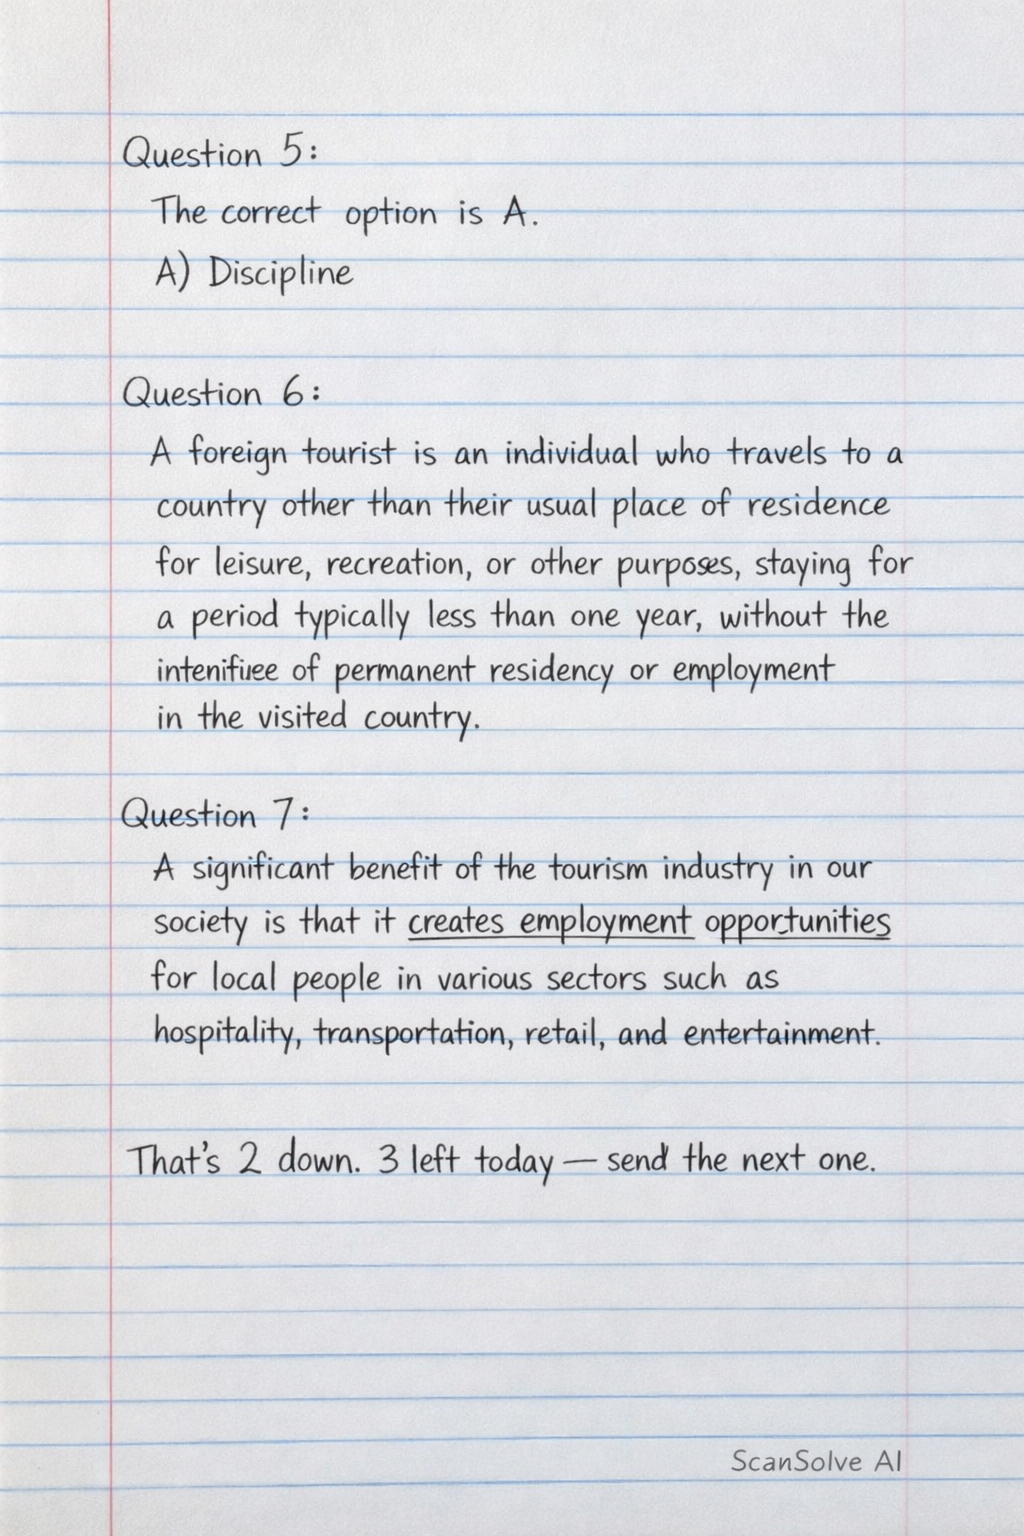 Question 5:
The correct option is A.
A) Discipline
Question 6:
A foreign tourist is an individual who travels to a
country other than their usual place of residence
for leisure, recreation, or other purposes, staying for
a period typically less than one year, without the
of permanent residency or employment
in the visited country.
Question 7:
A significant benefit of the tourism industry in our
society is that it creates employment opportunities
for local people in various sectors such as
hospitality, transportation, retail, and entertainment.
That's 2 down. 3 left today — send the next one.
ScanSolve AI